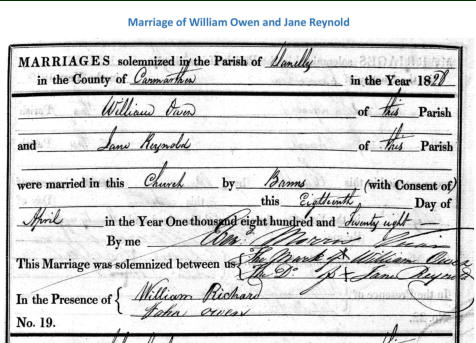 Marriage of William Owen and Jane Reynold
MARRIAGES solemnized in the Parish of Llanelly
in the County of Carmarthen in the Year 1828
William Owen of this Parish
and Jane Reynold of this Parish
were married in this Church by Banns (with Consent of)
this Eighteenth Day of
April in the Year One thousand eight hundred and Twenty eight
By me Morris
This Marriage was solemnized between us { The Mark of X William Owen
The Do. of X Jane Reynold
In the Presence of { William Richard
John Owen
No. 19.